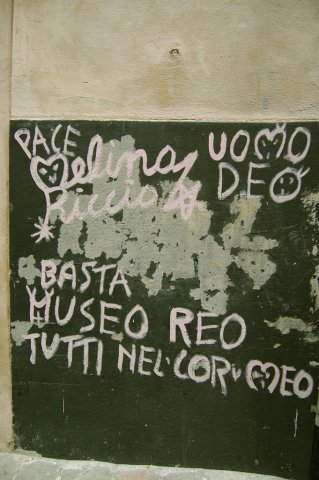 PACE
Melina
Riccio
UOMO
DEO
BASTA
MUSEO REO
TUTTI NEL CORMEO